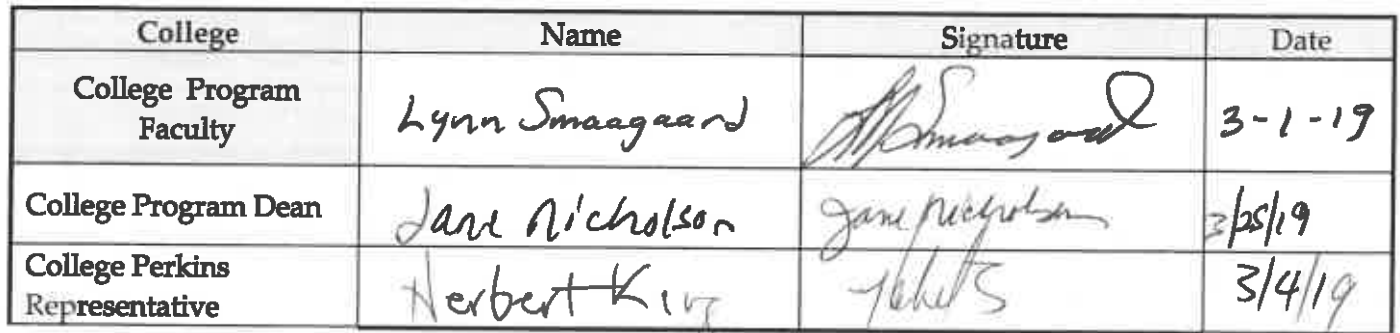 College Name Signature Date
College Program
Faculty
Lynn Smaagaard LMSmaagaard 3-1-19
College Program Dean Jane Nicholson Jane Nicholson 3/25/19
College Perkins
Representative
Herbert King 3/4/19